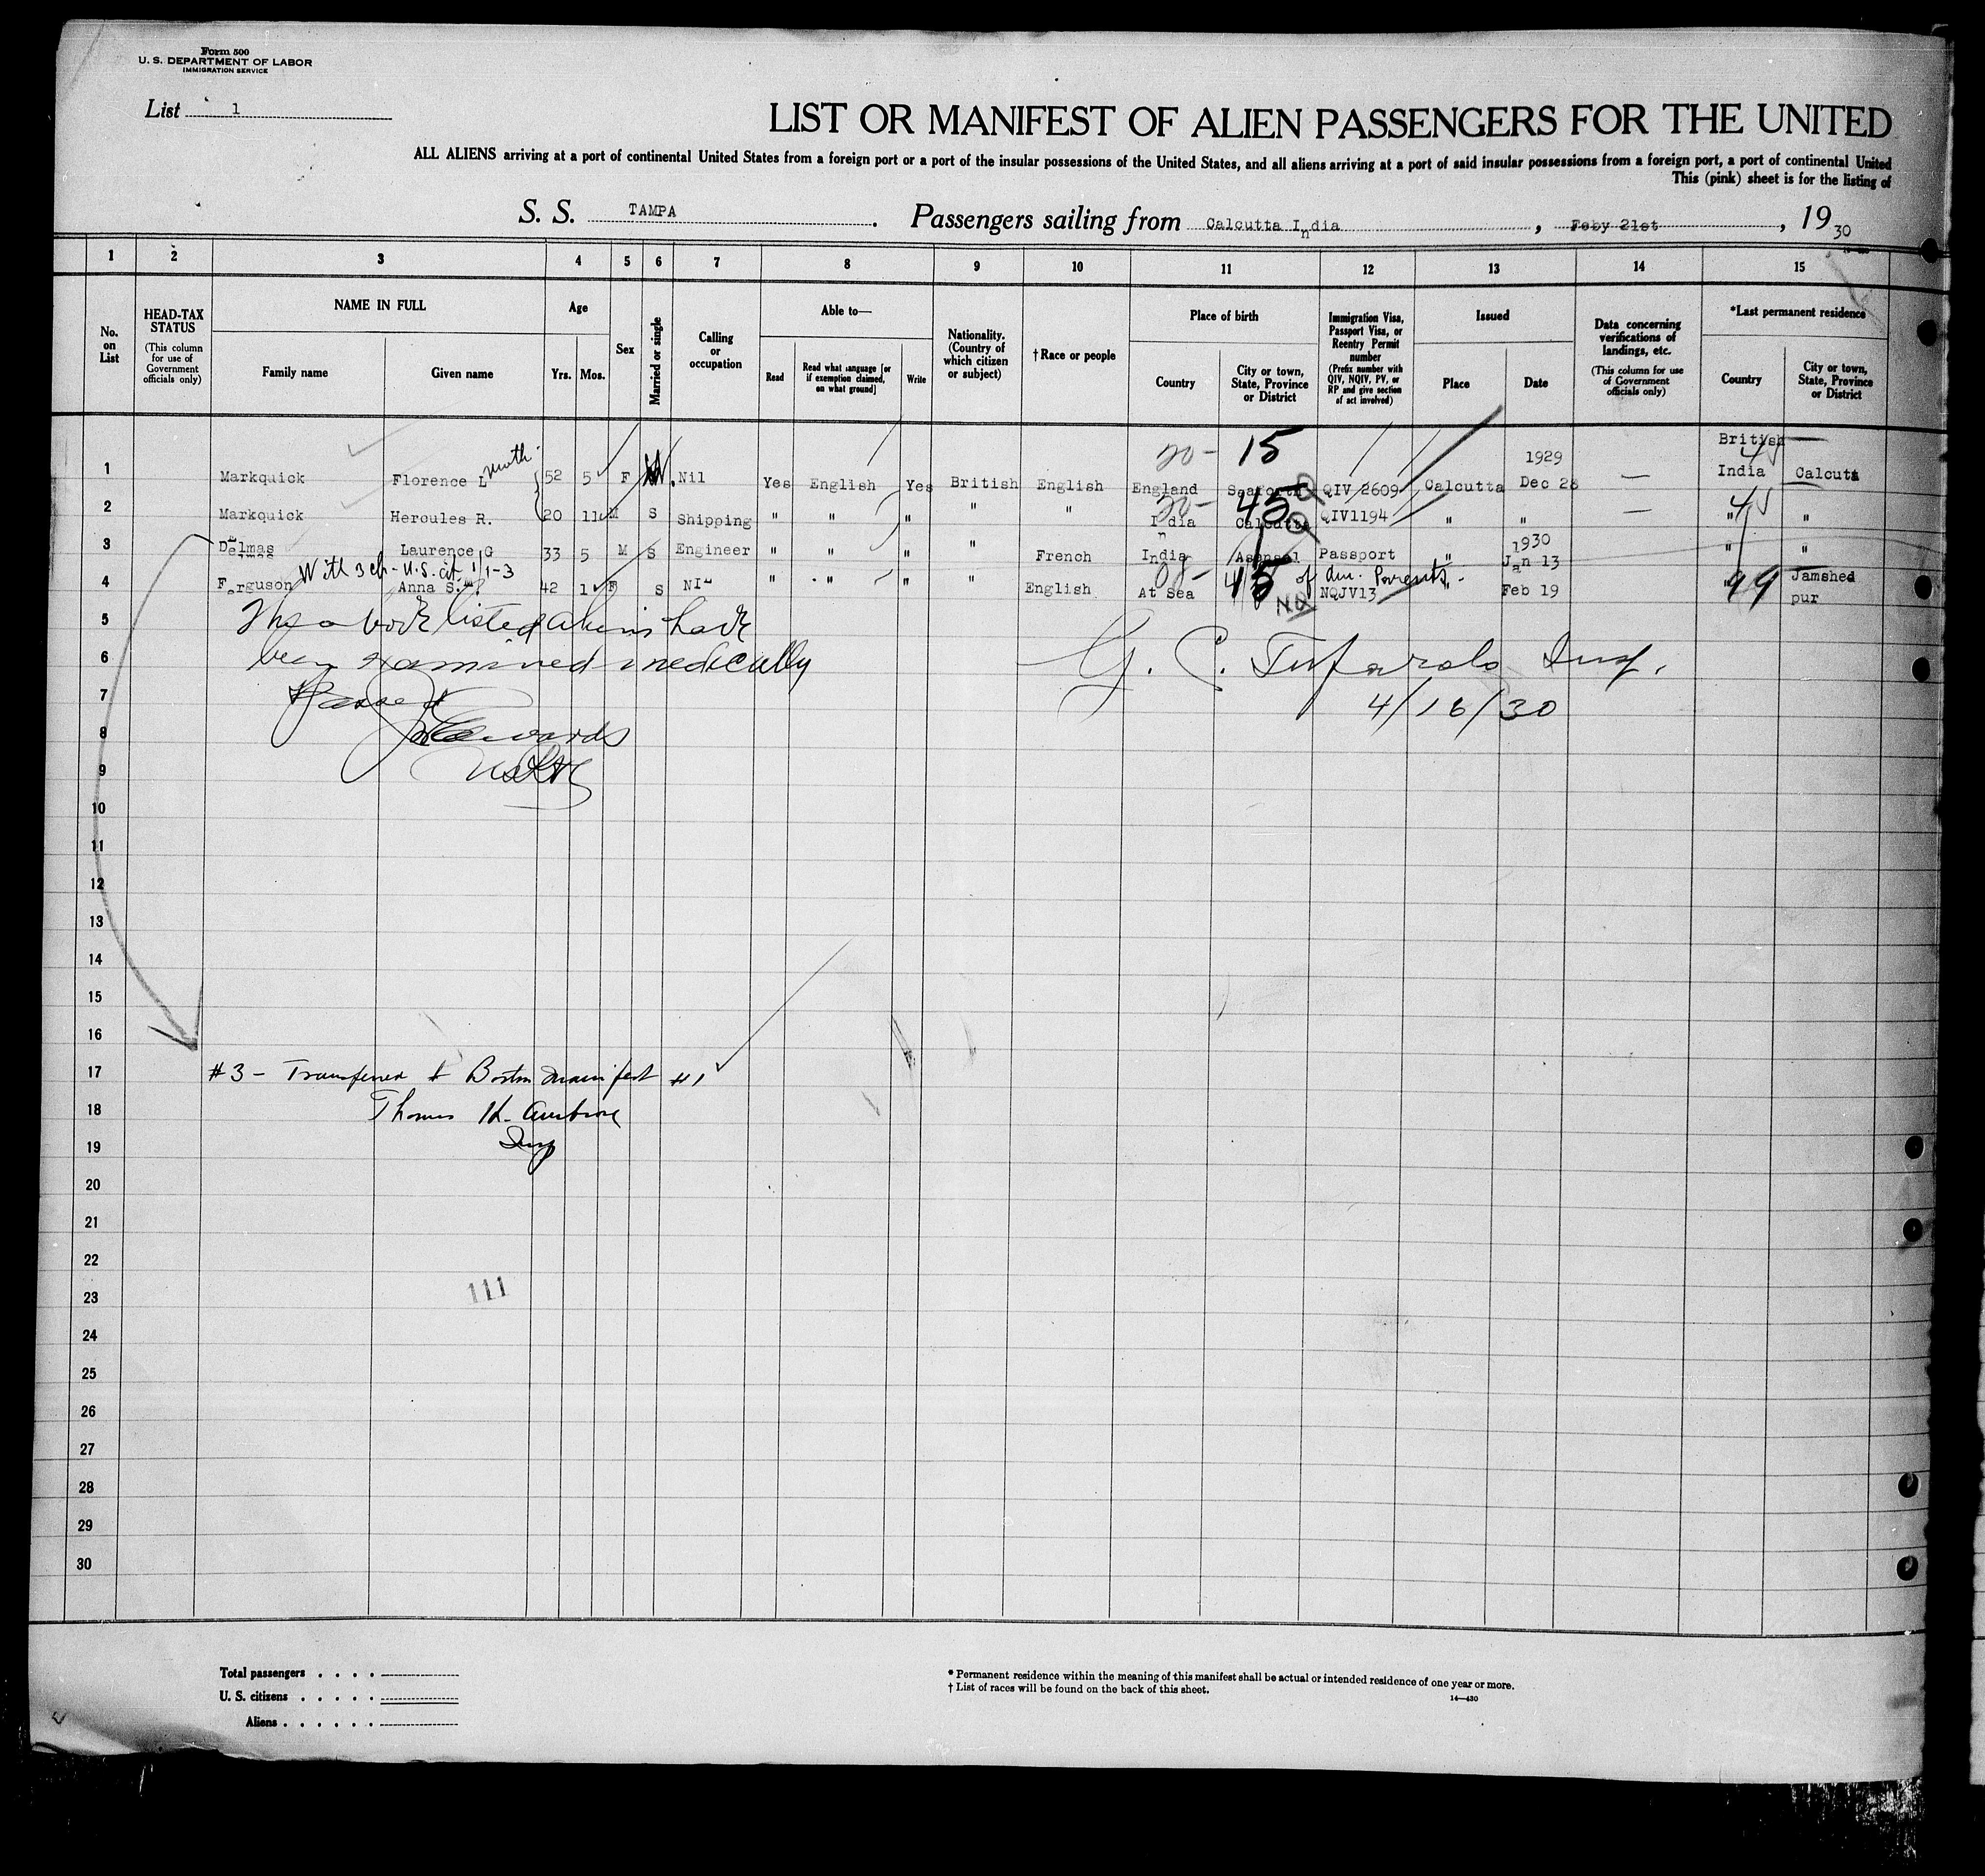 Form 500
U. S. DEPARTMENT OF LABOR
IMMIGRATION SERVICE
List 1
LIST OR MANIFEST OF ALIEN PASSENGERS FOR THE UNITED
ALL ALIENS arriving at a port of continental United States from a foreign port or a port of the insular possessions of the United States, and all aliens arriving at a port of said insular possessions from a foreign port, a port of continental United
This (pink) sheet is for the listing of
S. S. TAMPA. Passengers sailing from Calcutta India, Feby 21st, 19 30
1 2 3 4 5 6 7 8 9 10 11 12 13 14 15
No. on List
HEAD-TAX STATUS (This column for use of Government officials only)
NAME IN FULL
Family name Given name
Age
Yrs. Mos.
Sex
Married or single
Calling or occupation
Able to—
Read Read what language [or if exemption claimed, on what ground] Write
Nationality. (Country of which citizen or subject)
† Race or people
Place of birth
Country City or town, State, Province or District
Immigration Visa, Passport Visa, or Reentry Permit number (Prefix number with QIV, NQIV, PV, or RP and give section of act involved)
Issued
Place Date
Data concerning verifications of landings, etc. (This column for use of Government officials only)
*Last permanent residence
Country City or town, State, Province or District
20- 15 1929 British 45
1 Markquick Florence L moth. 52 5 F Nil Yes English Yes British English England Seaforth QIV 2609 Calcutta Dec 28 — India Calcutt
20- 45 45
2 Markquick Hercules R. 20 11 M S Shipping " " " " " India Calcutta QIV1194 " " — " "
3 Delmas Laurence G 33 5 M S Engineer " " " " French India Asansol Passport " 1930 Jan 13 " "
With 3 ch - U.S. cit 1/1-3 of Am. Parents.
4 Ferguson Anna S. 42 1 F S NIL " " " " English At Sea 45 NQ NQIV13 " Feb 19 " 99 Jamshed pur
5 The above listed aliens have
6 been examined medically
G. C. Insp.
7 Passed
4/16/30
8 Edwards
9
10
11
12
13
14
15
16
17 #3 - Transferred to Boston manifest #1
18 Thomas H. Ambrose
19 Insp
20
21
22
23 111
24
25
26
27
28
29
30
Total passengers . . . .
U. S. citizens . . . . .
Aliens . . . . . .
* Permanent residence within the meaning of this manifest shall be actual or intended residence of one year or more.
† List of races will be found on the back of this sheet.
14—430